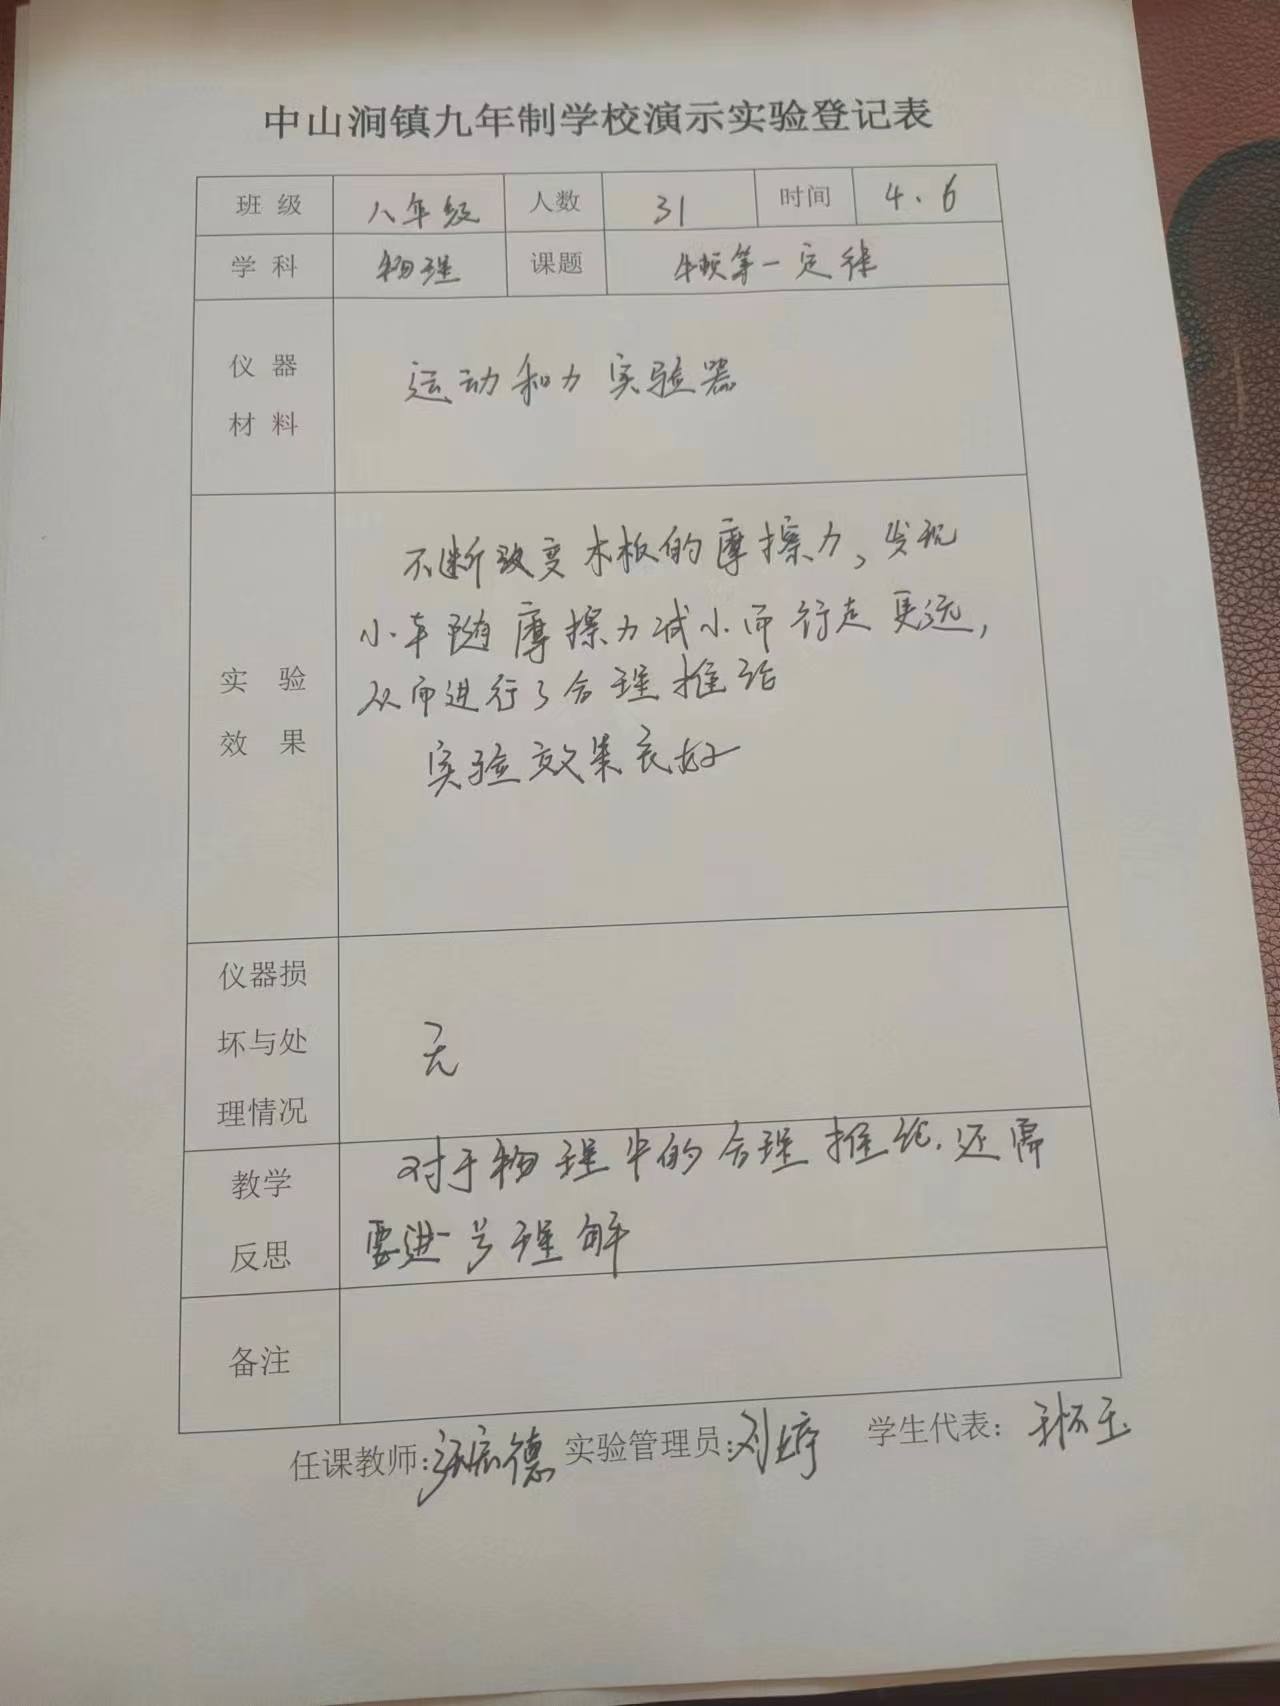 中山涧镇九年制学校演示实验登记表
班级 八年级 人数 31 时间 4.6
学科 物理 课题 牛顿第一定律
仪器
材料
运动和力实验器
不断改变木板的摩擦力,发现
小车随摩擦力减小而行走更远,
从而进行了合理推论
实验效果良好
实验
效果
仪器损
坏与处
理情况
无
教学
反思
对于物理中的合理推论.还需
要进一步理解
备注
任课教师: 实验管理员:刘婷 学生代表: